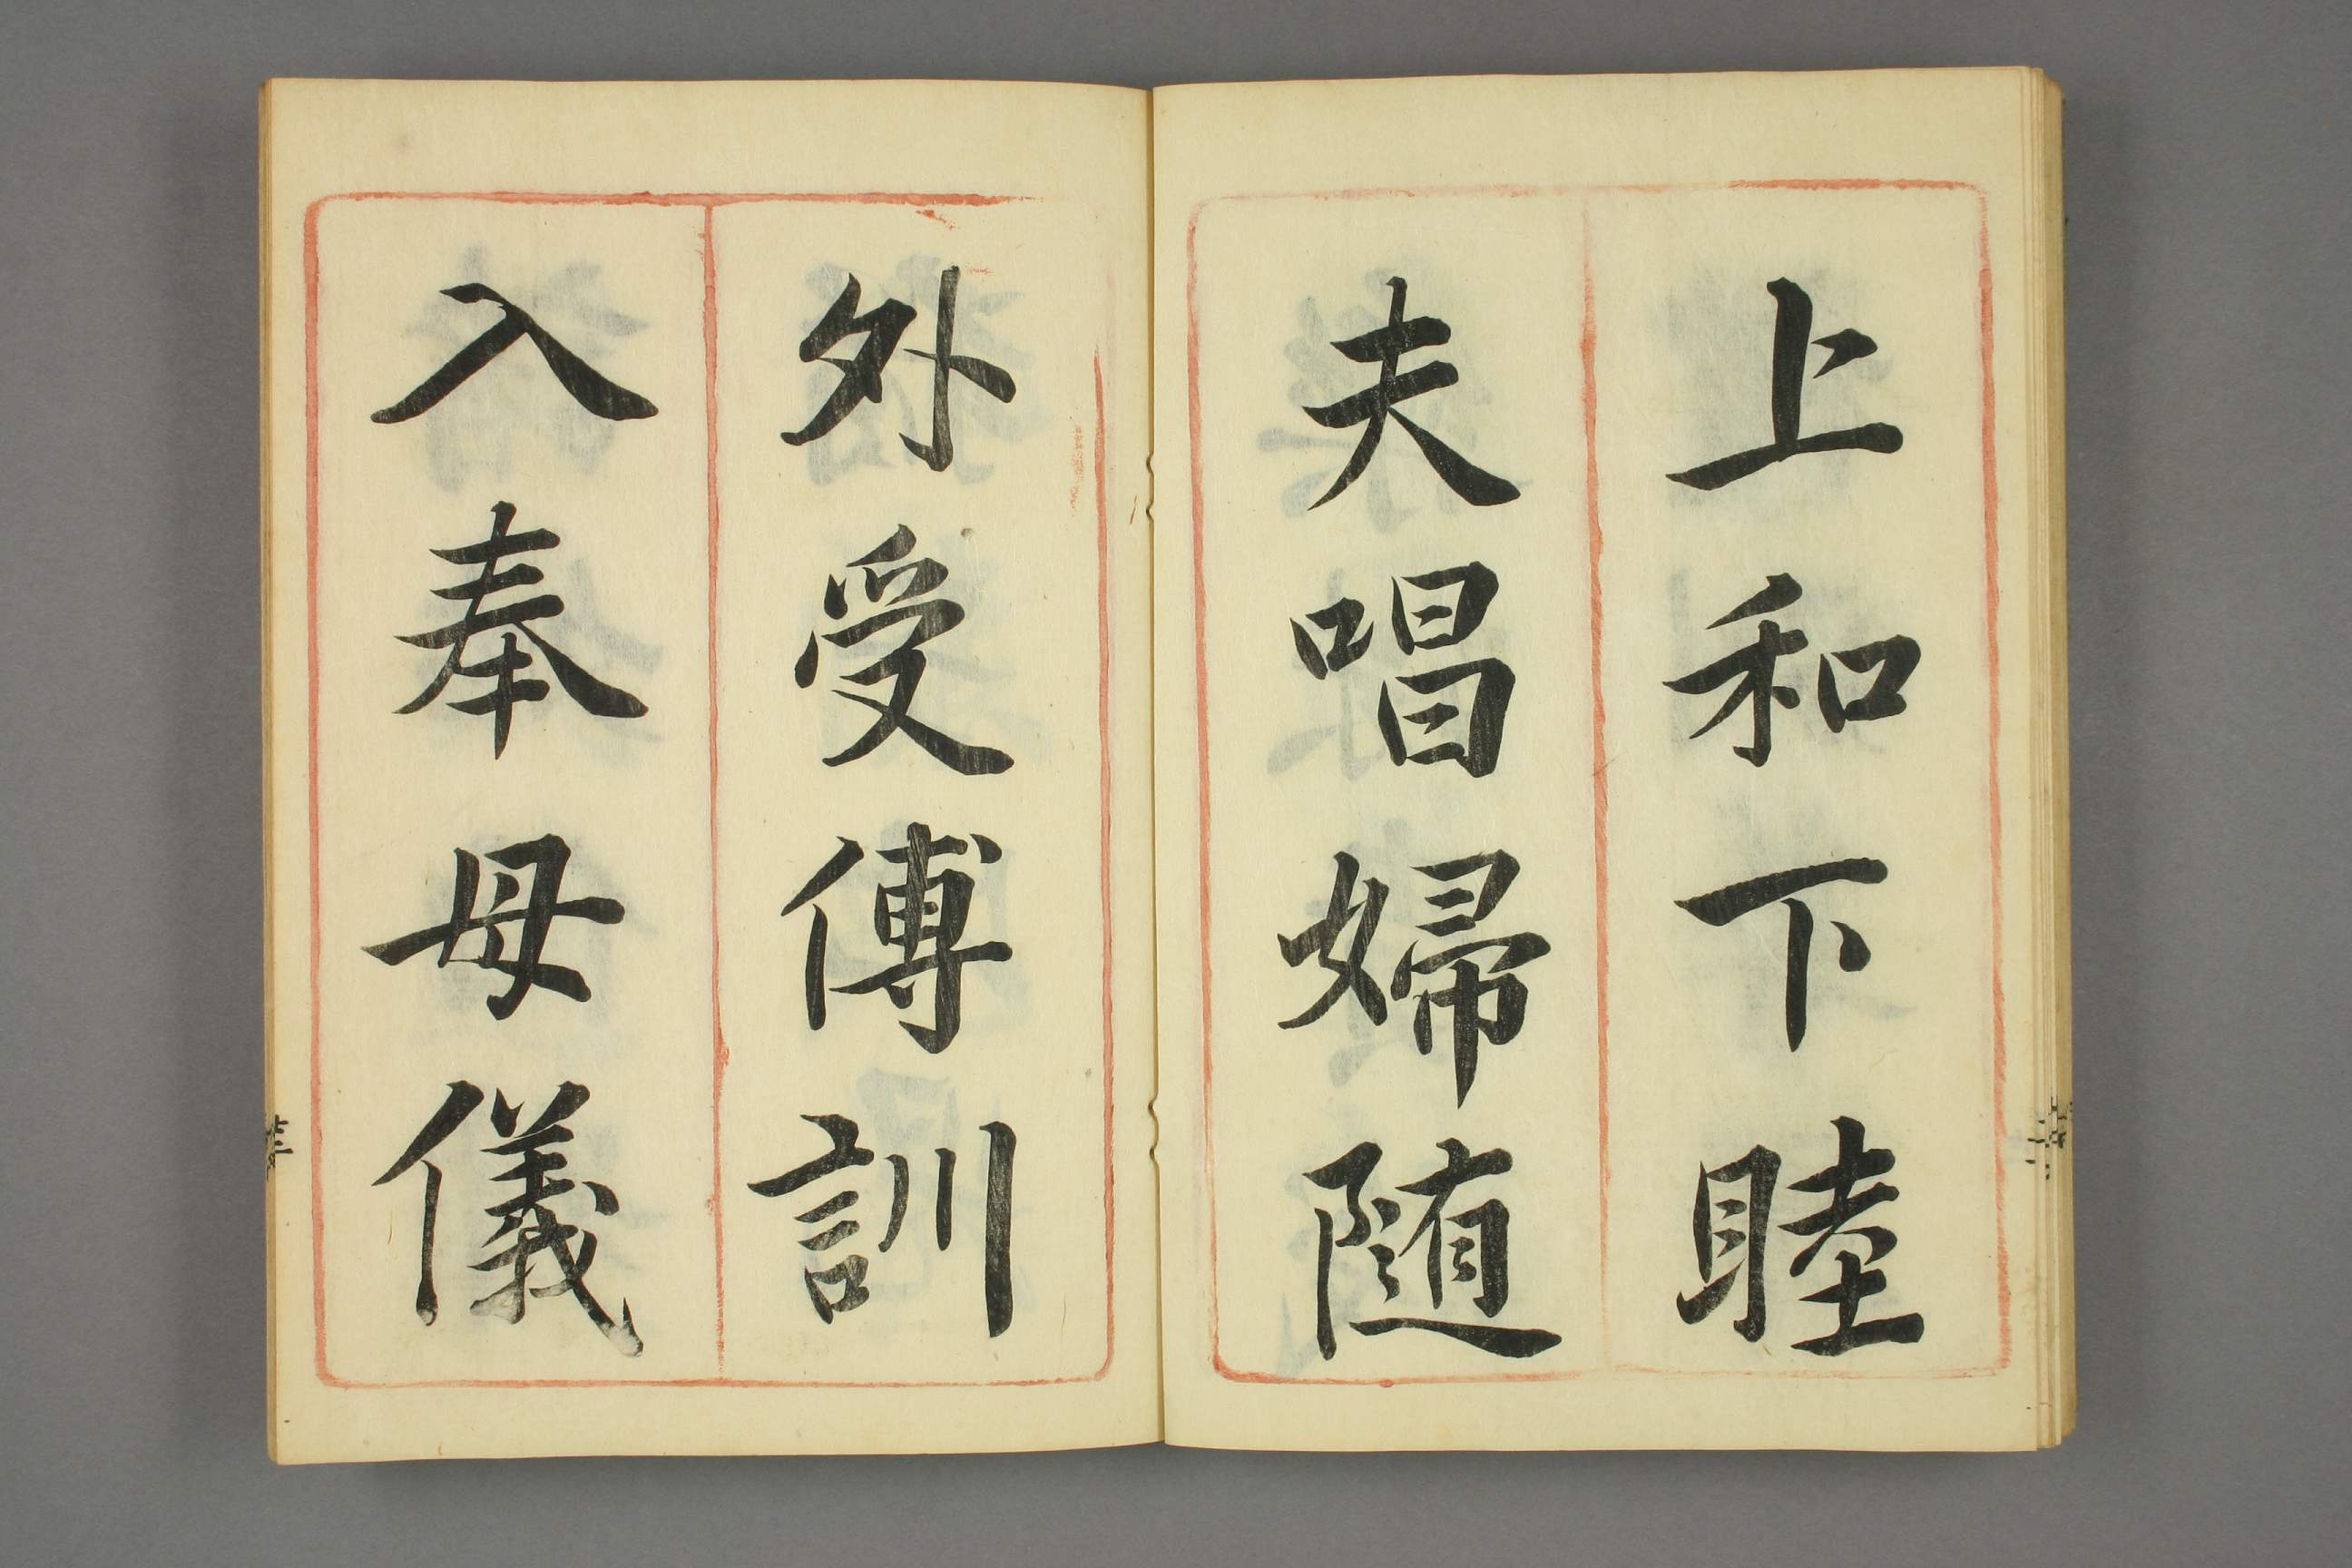 上和下睦
夫唱婦随
外受傅訓
入奉母儀